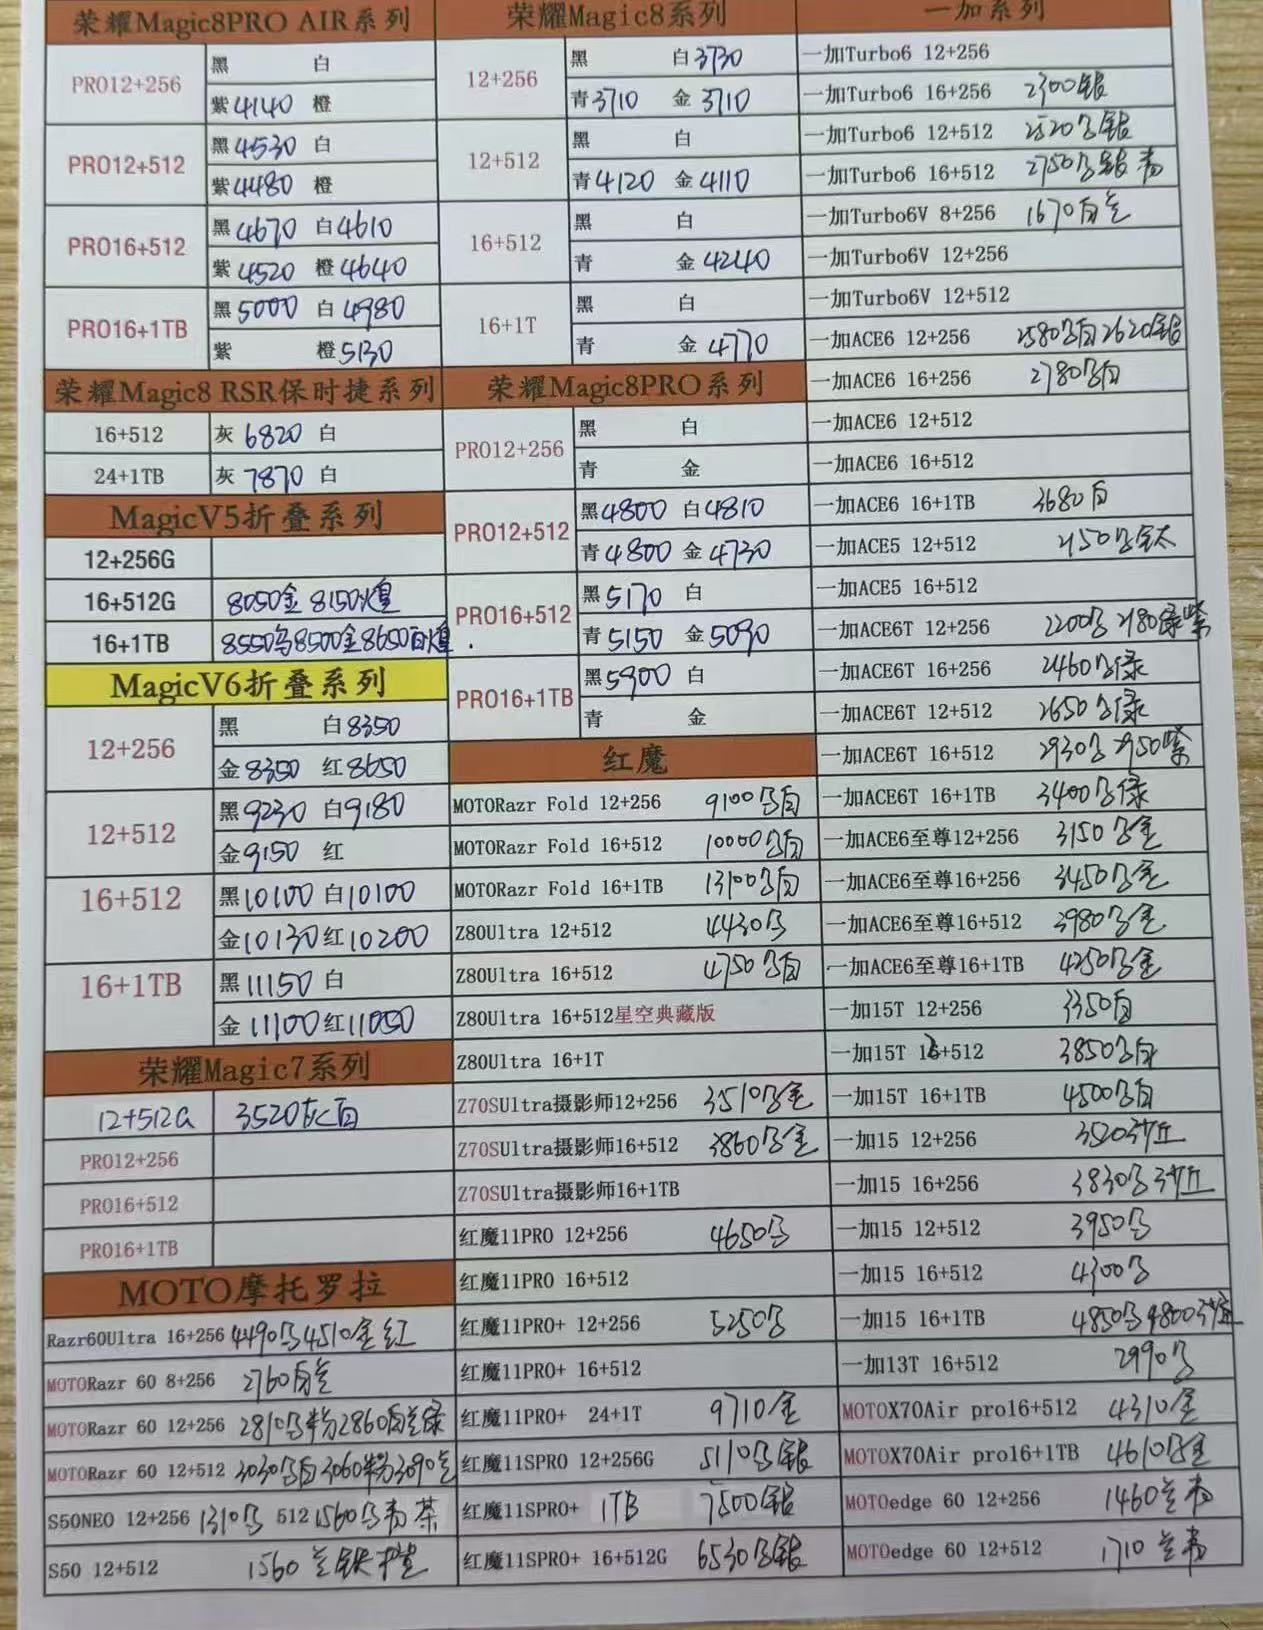 荣耀Magic8PRO AIR系列
PRO12+256
黑 白
紫4140 橙
PRO12+512
黑4530 白
紫4480 橙
PRO16+512
黑4670 白4610
紫4520 橙4640
PRO16+1TB
黑5000 白4980
紫 橙5130
荣耀Magic8 RSR保时捷系列
16+512 灰6820 白
24+1TB 灰7870 白
MagicV5折叠系列
12+256G
16+512G 8050金 8150煌
16+1TB 8550乌8500金8650白煌
MagicV6折叠系列
12+256
黑 白8350
金8350 红8650
12+512
黑9230 白9180
金9150 红
16+512
黑10100 白10100
金10130 红10200
16+1TB
黑11150 白
金11100 红11050
荣耀Magic7系列
12+512G 3520灰白
PRO12+256
PRO16+512
PRO16+1TB
MOTO摩托罗拉
Razr60Ultra 16+256 4490乌4510金红
MOTORazr 60 8+256 2760白兰
MOTORazr 60 12+256 2810乌粉2860白兰绿
MOTORazr 60 12+512 3030乌白3060粉3090兰
S50NEO 12+256 1310乌 512 1560乌青茶
S50 12+512 1560兰
荣耀Magic8系列
12+256
黑 白3730
青3710 金3710
12+512
黑 白
青4120 金4110
16+512
黑 白
青 金4240
16+1T
黑 白
青 金4770
荣耀Magic8PRO系列
PRO12+256
黑 白
青 金
PRO12+512
黑4800 白4810
青4800 金4730
PRO16+512
黑5170 白
青5150 金5090
PRO16+1TB
黑5900 白
青 金
红魔
MOTORazr Fold 12+256 9100乌白
MOTORazr Fold 16+512 10000乌白
MOTORazr Fold 16+1TB 13100乌白
Z80Ultra 12+512 4430乌
Z80Ultra 16+512 4750乌白
Z80Ultra 16+512星空典藏版
Z80Ultra 16+1T
Z70SUltra摄影师12+256 3510乌金
Z70SUltra摄影师16+512 3860乌金
Z70SUltra摄影师16+1TB
红魔11PRO 12+256 4650乌
红魔11PRO 16+512
红魔11PRO+ 12+256 5250乌
红魔11PRO+ 16+512
红魔11PRO+ 24+1T 9710金
红魔11SPRO 12+256G 5110乌银
红魔11SPRO+ 1TB 7500银
红魔11SPRO+ 16+512G 6530乌银
一加系列
一加Turbo6 12+256
一加Turbo6 16+256 2300银
一加Turbo6 12+512 2520乌银
一加Turbo6 16+512 2750乌银青
一加Turbo6V 8+256 1670白兰
一加Turbo6V 12+256
一加Turbo6V 12+512
一加ACE6 12+256 2580乌白2620银
一加ACE6 16+256 2780乌白
一加ACE6 12+512
一加ACE6 16+512
一加ACE6 16+1TB 3680白
一加ACE5 12+512 2150乌钛
一加ACE5 16+512
一加ACE6T 12+256 2200乌 2180绿紫
一加ACE6T 16+256 2460乌绿
一加ACE6T 12+512 2650乌绿
一加ACE6T 16+512 2930乌 2950紫
一加ACE6T 16+1TB 3400乌绿
一加ACE6至尊12+256 3150乌金
一加ACE6至尊16+256 3450乌金
一加ACE6至尊16+512 3980乌金
一加ACE6至尊16+1TB 4250乌金
一加15T 12+256 3350白
一加15T 16+512 3850乌白
一加15T 16+1TB 4500乌白
一加15 12+256 3520沙丘
一加15 16+256 3830乌沙丘
一加15 12+512 3950乌
一加15 16+512 4300乌
一加15 16+1TB 4850乌4800沙丘
一加13T 16+512 2990乌
MOTOX70Air pro16+512 4310金
MOTOX70Air pro16+1TB 4610乌金
MOTOedge 60 12+256 1460兰青
MOTOedge 60 12+512 1710兰青